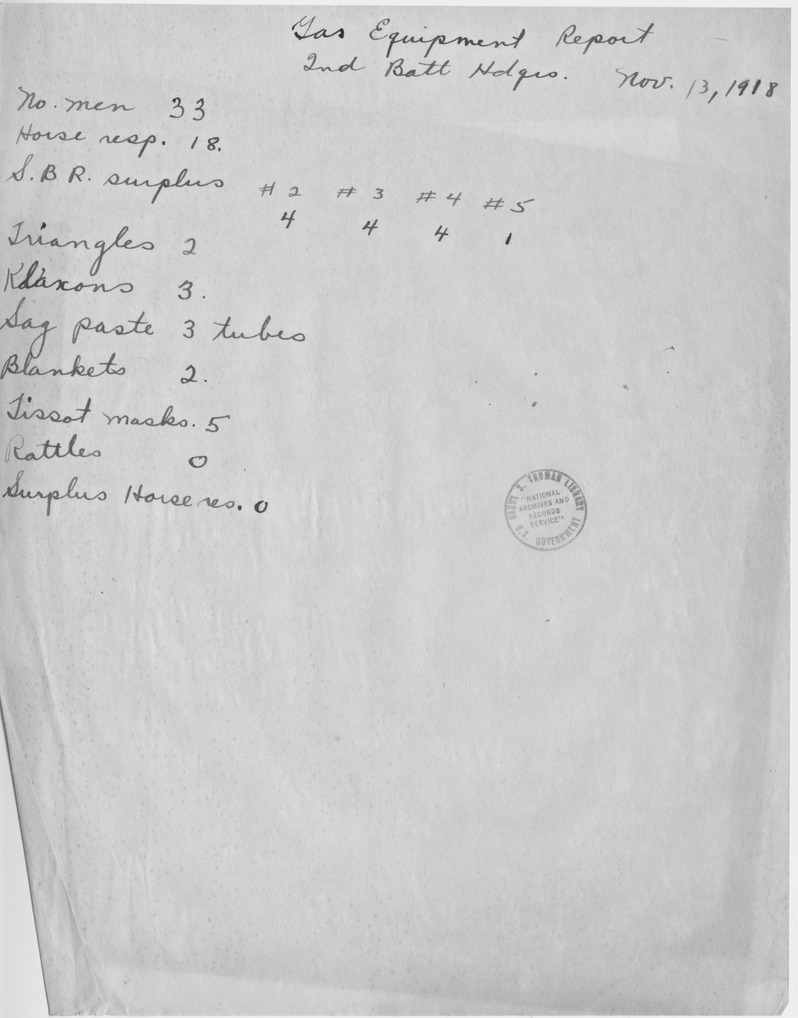 Gas Equipment Report
2nd Batt Hdqrs. Nov. 13, 1918
No. men 33
Horse resp. 18.
S.B.R. surplus #2 #3 #4 #5
4 4 4 1
Triangles 2
Klaxons 3.
Sag paste 3 tubes
Blankets 2.
Tissot masks. 5
Rattles 0
Surplus Horse res. 0
HARRY S. TRUMAN LIBRARY
"NATIONAL
ARCHIVES AND
RECORDS
SERVICE"
U.S. GOVERNMENT